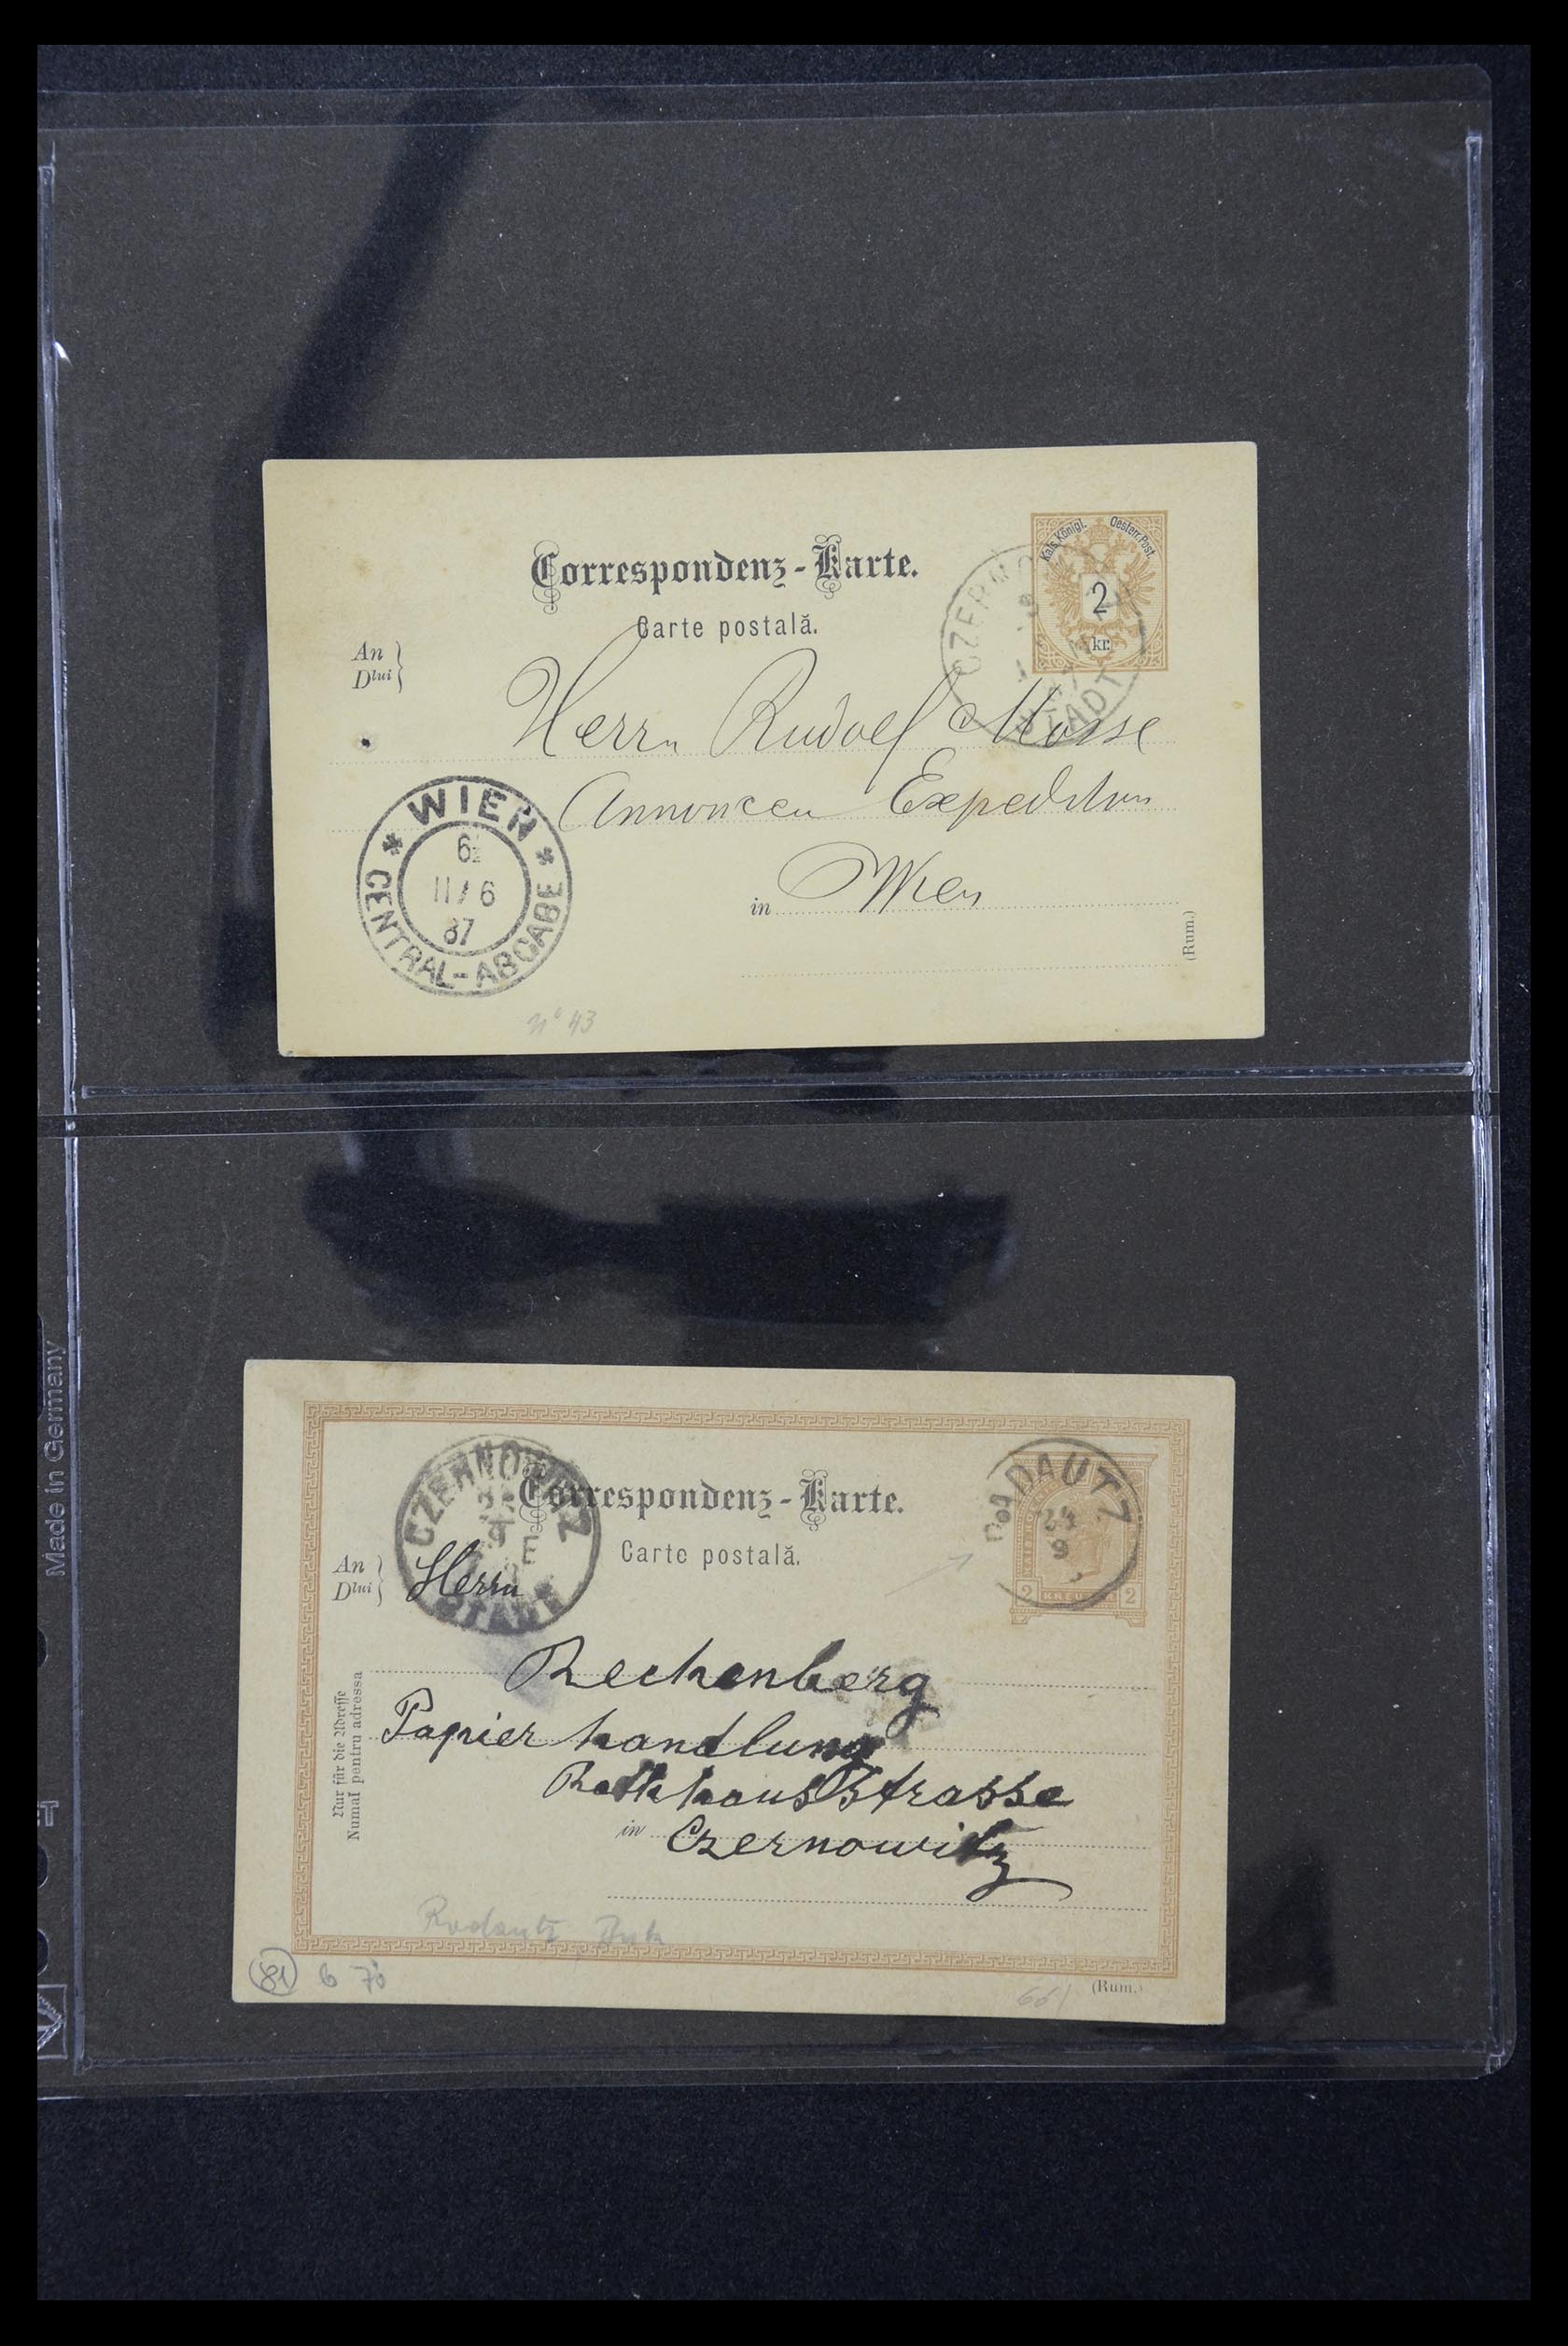 Correspondenz-Karte.
Carte postală.
Kais. Königl. Oesterr. Post.
2
kr.
An
Dlui
CZERNO
STADT
Herrn Rudolf Mosse
Annoncen Expedition
in Wien
WIEN
6½
11/6
87
CENTRAL-ABGABE
(Rum.)
No 43
Correspondenz-Karte.
Carte postală.
CZERNOWITZ
9
E
STADT
RADAUTZ
24
9
2 KREUZER 2
An
Dlui
Herrn
Rechenberg
Papierhandlung
Rathhausstrasse
in Czernowitz
Nur für die Adresse
Numaĭ pentru adressa
Radautz, Buk
81 6 70
661
(Rum.)
Made in Germany